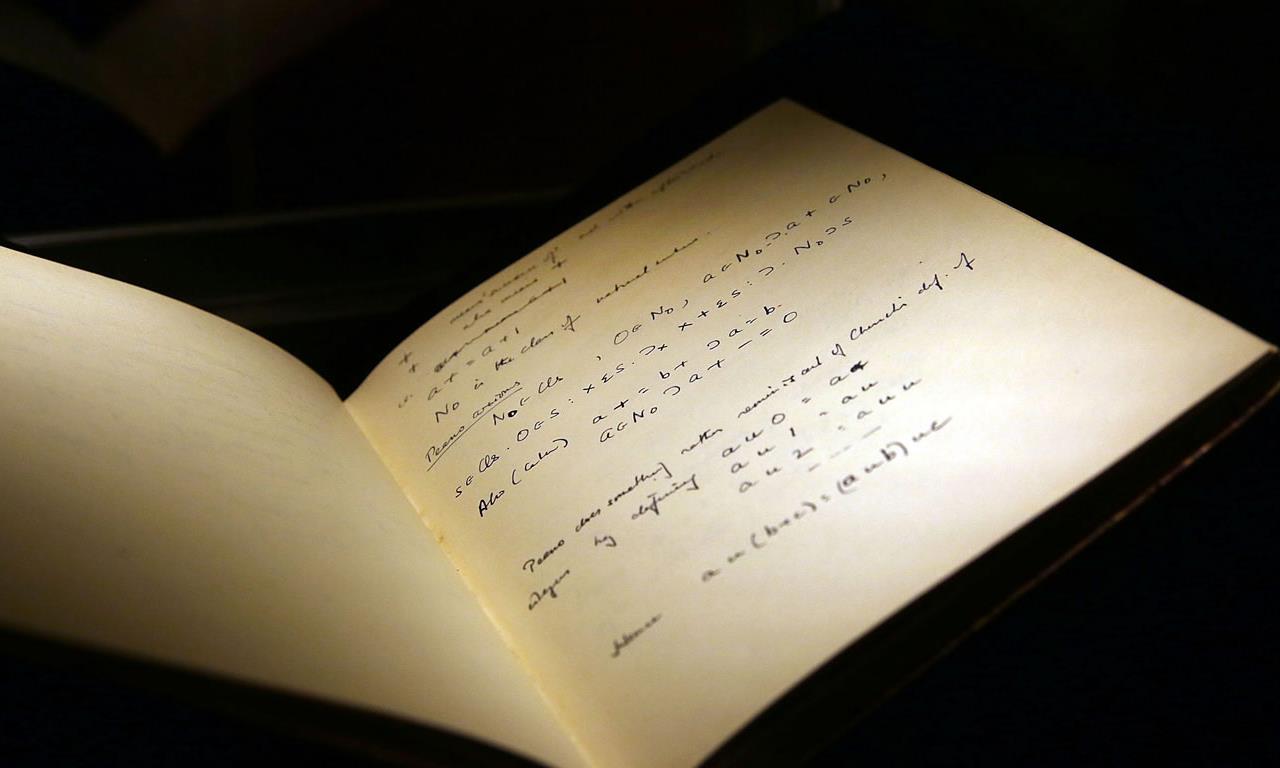 + means
the means +
a+ = a+1
No is the class of natural numbers.
Peano axioms
No ∈ Cls , 0 ∈ No , a ∈ No .⊃. a+ ∈ No ,
s ∈ Cls . 0 ∈ s : x ∈ s .⊃x x+ ε s : ⊃. No ⊃ s
Also (later) a+ = b+ ⊃ a = b.
a ∈ No ⊃ a+ -= 0
Peano does something rather reminiscent of Church's def. of
integers by defining a u 0 = a
a u 1 = a u
a u 2 = a u u
- - - -
Hence a u (b+c) = (a u b) u c